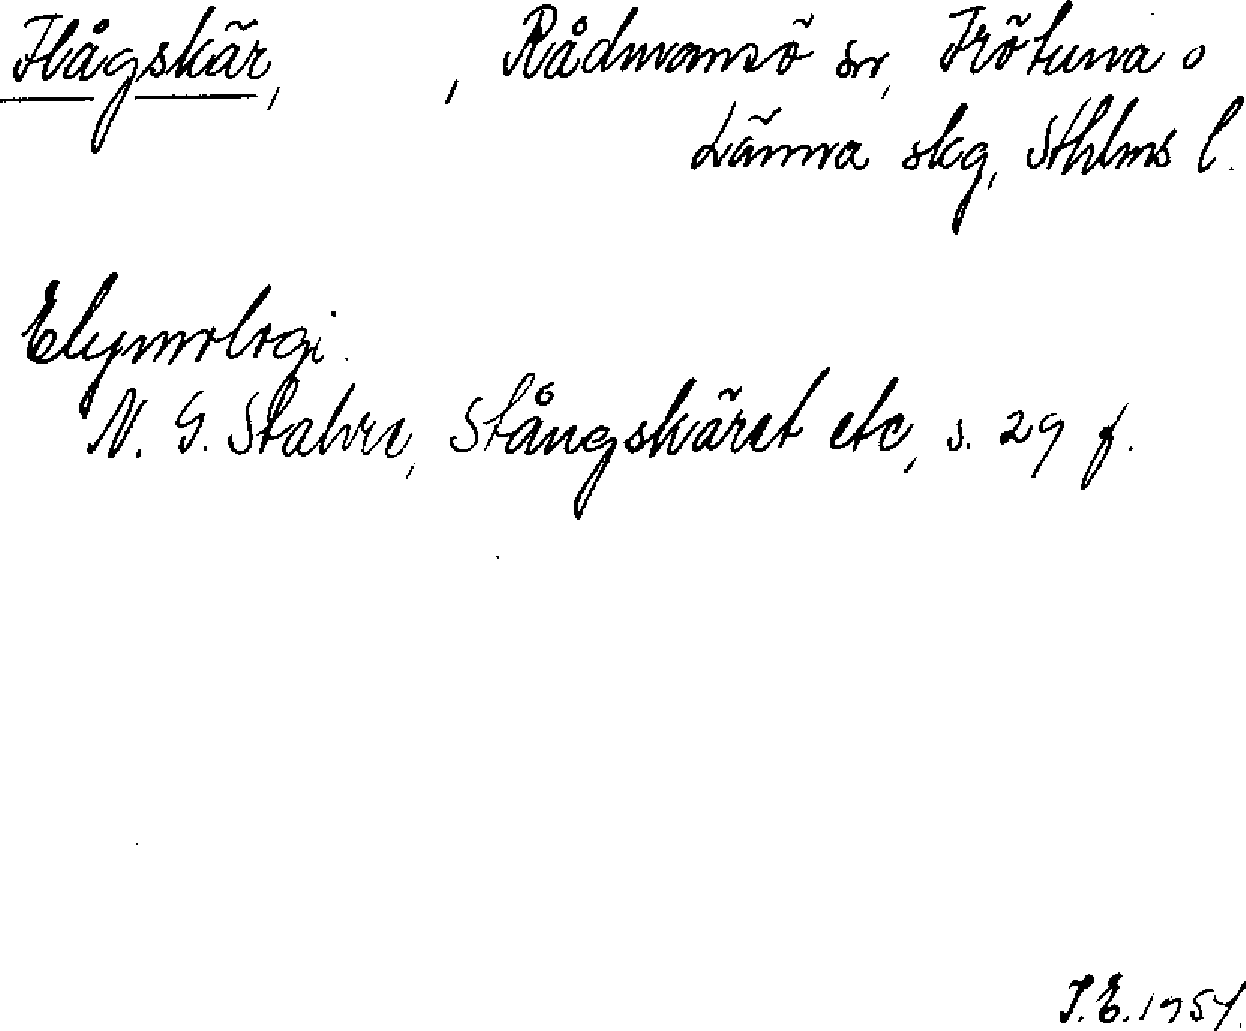 Hågskär, , Rådmansö sn, Frötuna o
Länna skg, Sthlms l.
Etymologi.
N. G. Stahre, Stångskäret etc, s. 29 f.
I. E. 1954.